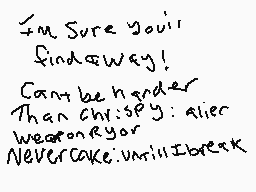 I'm Sure you'll
find a way!
Can't be harder
Than chrispy: alier
weaponRyor
Nevercake: untill I break